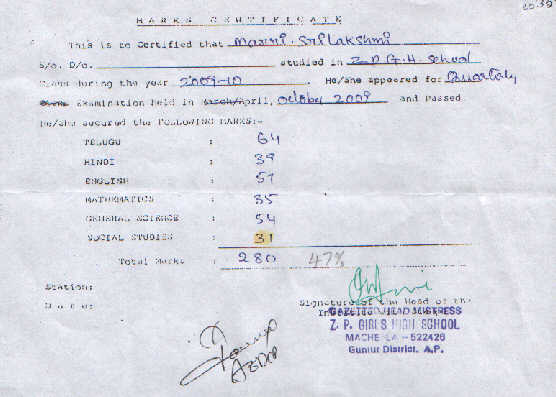 MARKS CERTIFICATE
This is to Certified that Marri. Srilakshmi
S/o. D/o. studied in Z.P.G.H. School
Class during the year 2009-10 He/she appeared for Quarterly
Examination held in March/April, October 2009 and Passed
He/she secured the FOLLOWING MARKS:-
TELUGU : 64
HINDI : 39
ENGLISH : 57
MATHEMATICS : 35
GENERAL SCIENCE : 54
SOCIAL STUDIES : 31
Total Marks : 280 47%
Station:
Date:
Signature of the Head of the
GAZETTED HEAD MISTRESS
Z. P. GIRLS HIGH SCHOOL
MACHERLA - 522426
Guntur District, A.P.